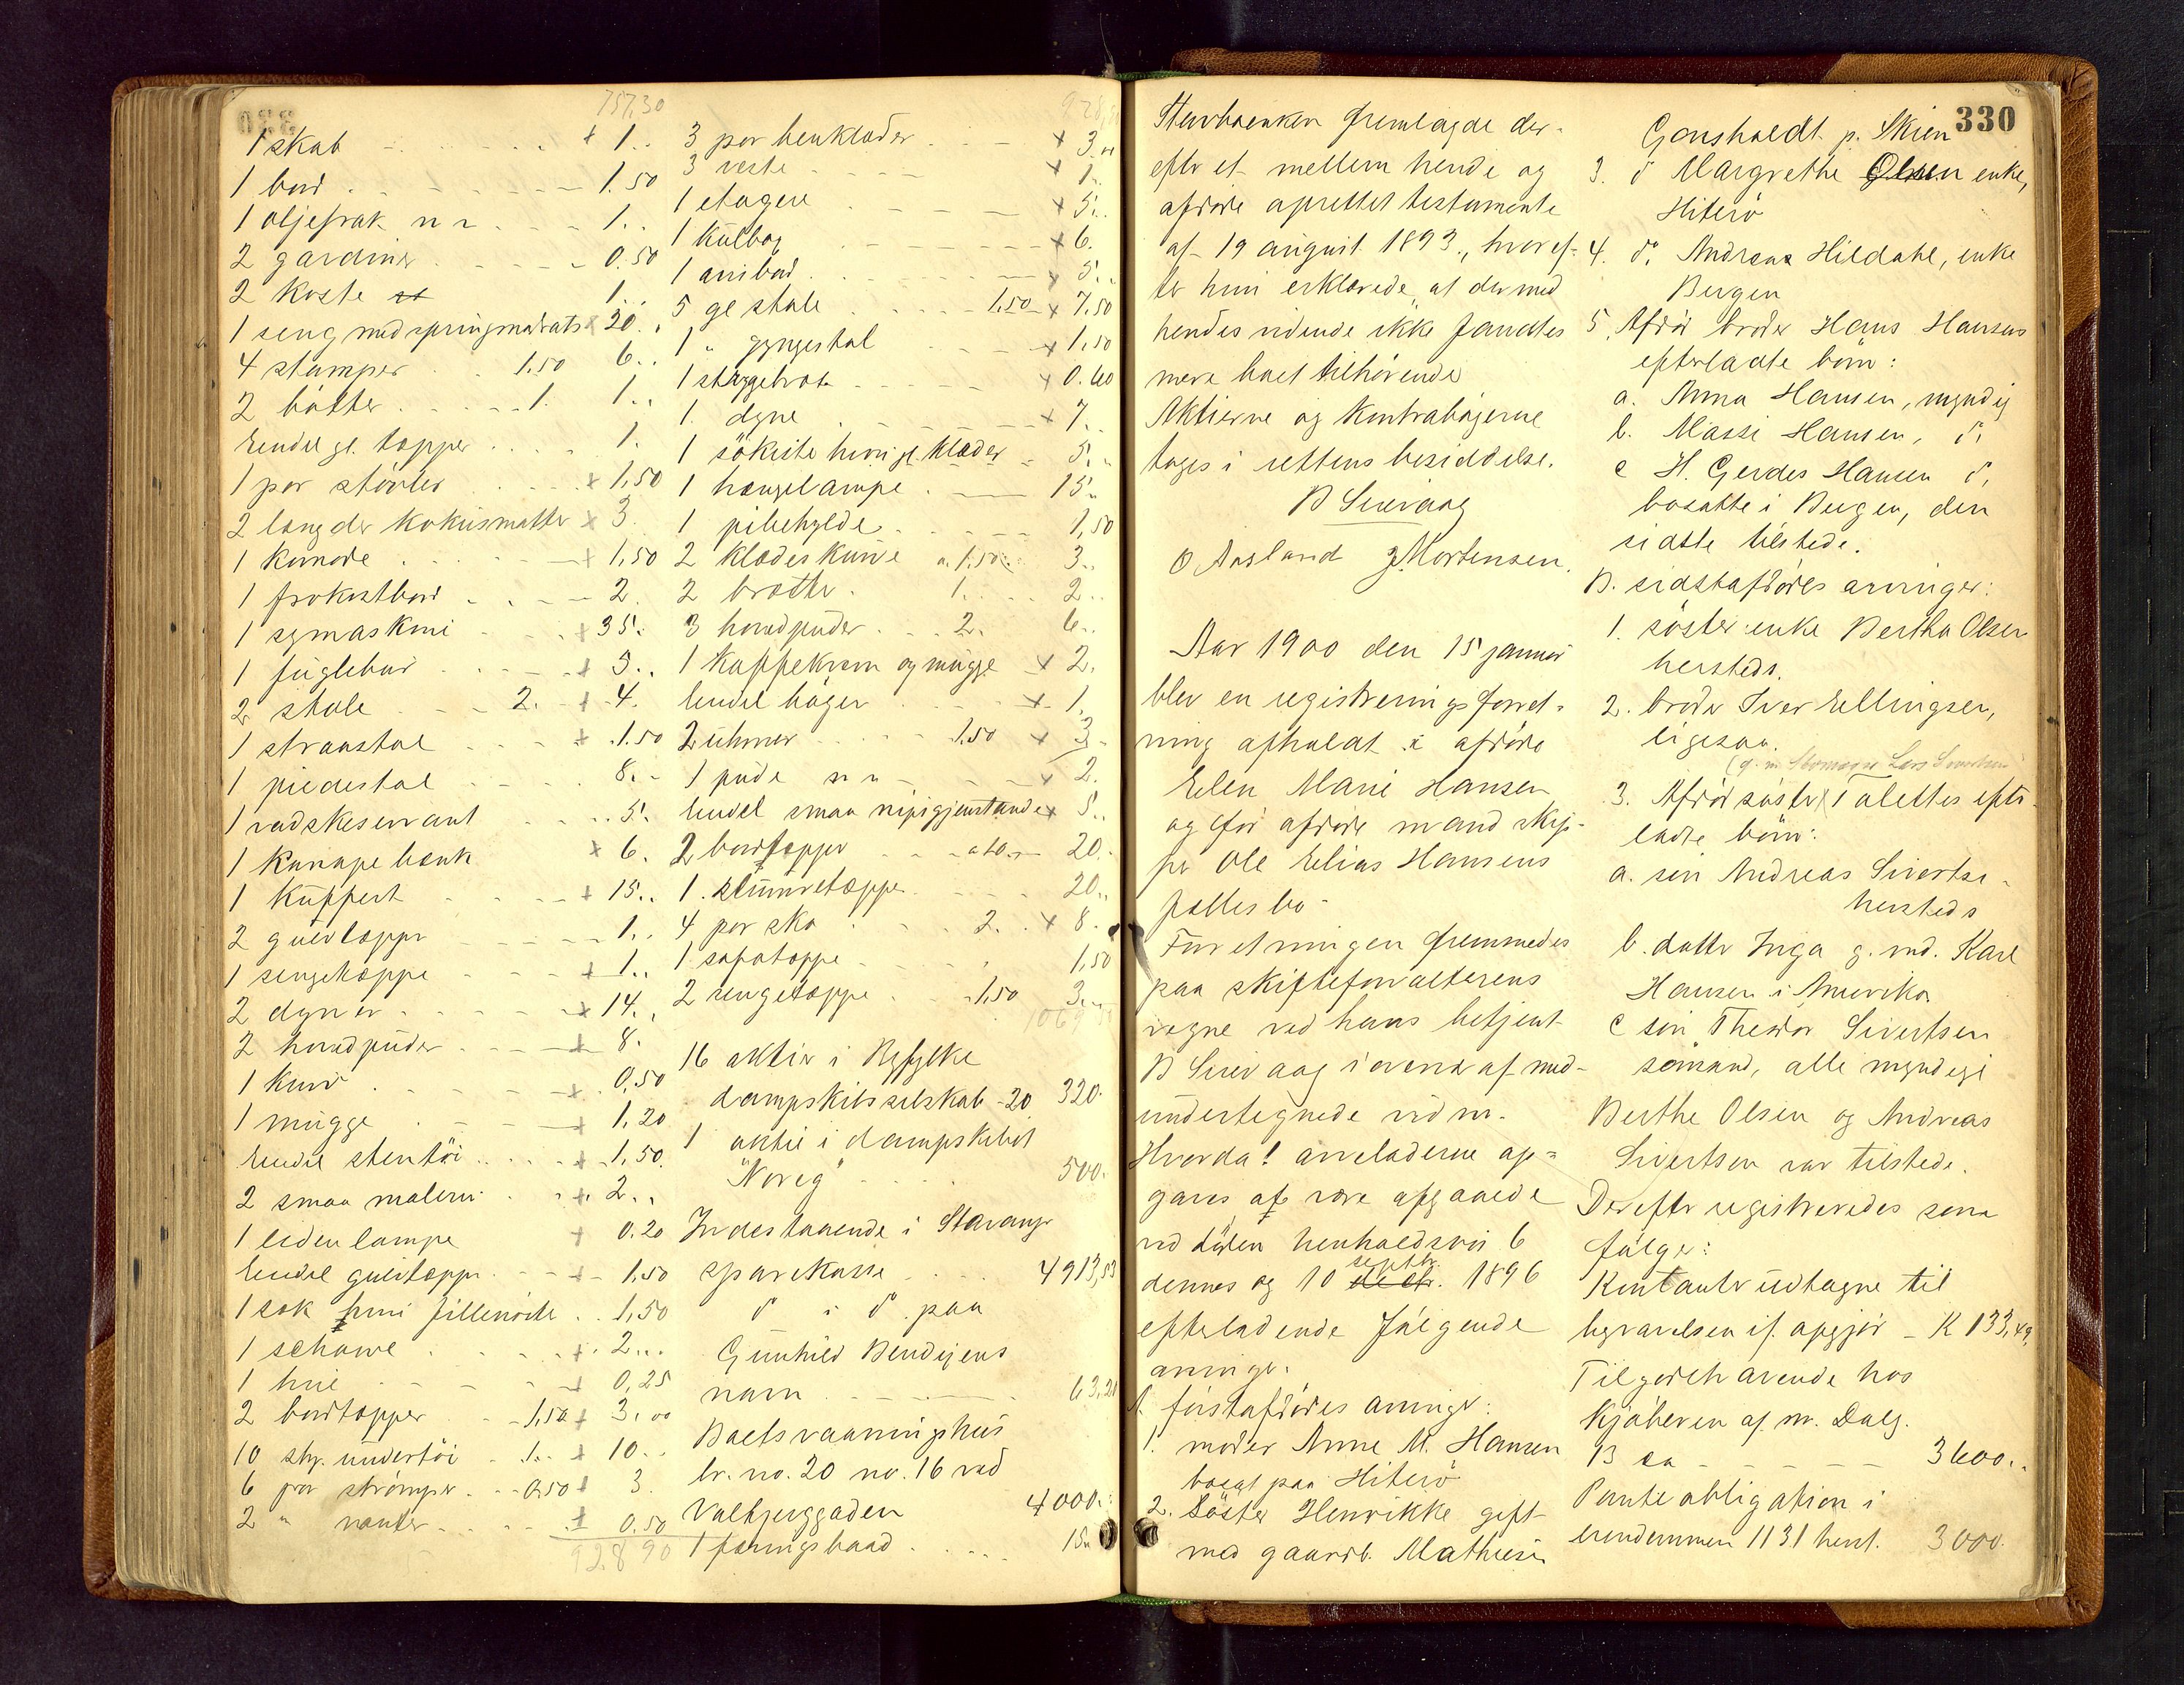 757,30
1 skab + 1..
1 bord 1.50
1 oljefrak n n 1..
2 gardiner 0.50
2 koste 1..
1 seng med springmadrats 20..
4 stamper 1.50 6..
2 bøtter 1. 1..
Endel gl. tæpper 1.
1 par støvler + 1,50
2 længder kokusmatter + 3.
1 komode + 1,50
1 frokostbord 2.
1 symaskine + 35.
1 fuglebur + 3..
2 stole 2. + 4.
1 straastol + 1.50
1 piedestal 8.-
1 vadskeservant 5.
1 kanape bænk + 6.
1 kuffert + 15..
2 gulvtæpper 1..
1 sengetæppe + 1..
2 dyner + 14..
2 hovedpuder + 8.
1 kurv + 0,50
1 mugge + 1,20
Endel stentøi + 1,50
2 smaa malerier + 2..
1 liden lampe + 0.20
Endel gulvtæpper + 1,50
1 sæk hvori fillerier 1,50
1 schawl + 2...
1 hue + 0,25
2 bordtæpper 1,50 + 3,00
10 stk. undertøi 1.. + 10..
6 par strømper 0,50 + 3.
2 " vanter + 0.50
928 90
3 par benklæder + 3..
3 veste + 1..
1 etagere + 5..
1 kulbox + 6.
1 anrbord + 5..
5 gl stole 1,50 + 7,50
1 " gyngestol + 1,50
1 stryggebræt + 0.60
1. dyne + 7..
1 søkiste hvori gl. klæder 5..
1 hængelampe 15..
1 pibehylde 1,50
2 klædeskurve a 1,50 3..
2 brætte 1. 2..
3 hovedpuder 2. 6..
1 kaffekvern og mugge + 2.
Endel bøger + 1.
2 uhrer 1,50 + 3.
1 pude n n + 2.
Endel smaa nipsgjenstande + 5..
2 bordtæpper a 10.. 20..
1. slumretæppe 20..
4 par sko 2. + 8..
1 sofatæppe 1,50
2 sengetæpper 1,50 3..
16 aktier i Ryfylke
dampskibsselskab - 20 320.
1 aktie i dampskibet
"Noreg" 500.
Indestaaende i Stavanger
sparekasse 4913,53
do i do paa
Gunhild Bendixens
navn 63,21
Boets vaaningshus
br. no. 20 no. 16 ved
Valbjerggaden 4000..
1 færingsbaad 15..
Stervboenken fremlagde der-
efter et mellem hende og
afdøde oprettet testamente
af 19 august 1893., hvoref-
ter hun erklærede, at der med
hendes vidende ikke fandtes
mere boet tilhørende
Aktierne og Kontrabøgerne
toges i rettens besiddelse.
B Sivevaag
O Aasland J. Mortensen.
Aar 1900 den 15 januar
blev en registreringsforret-
ning afholdt i afdøde
Elen Marie Hansen
og før afdøde mand skip-
per Ole Elias Hansens
fællesbo -
Forretningen fremmedes
paa skifteforvalterens
vegne ved hans betjent
B Sivevaag i overvær af med-
undertegnede vidner.
Hvorda! arveladerne op-
gaves at være afgaaede
ved døden henholdsvis 6
dennes og 10 septbr. 1896
efterladende følgende
arvinger.
A. førstafdødes arvinger:
1. moder Anne M. Hansen
boesat paa Hiterø
2. Søster Henrikke gift
med gaardb. Mathiesen
330
Gonsholdt p. Skien
3. do Margrethe Olsen enke,
Hiterø
4. do. Andrea Hildahl, enke
Bergen
5. Afdød broder Hans Hansens
efterladte børn:
a. Anna Hansen, myndig
b. Massi Hansen, do
c H. Gerdes Hansen do,
bosatte i Bergen, den
sidste tilstede.
B. sidstafdødes arvinger:
1. søster enke Bertha Olsen
hersteds.
2. broder Iver Ellingsen,
ligesaa.
(g. m. Lars Sivertsen)
3. Afdød søster Talettes efter-
ladte børn:
a. søn Andreas Sivertsen
hersteds
b. datter Inga g. md. Karl
Hansen i Amerika
c søn Theodor Sivertsen
sømand, alle myndige
Berthe Olsen og Andreas
Sivertsen var tilstede.
Derefter registreredes som
følger:
Kontanter udtagne til
begravelsen if. opgjør - K 133,49
Tilgodehavende hos
Kjøberen af m. Dalg.
B sa 3600..
Panteobligation i
eiendommen 1131 herst. 3000.